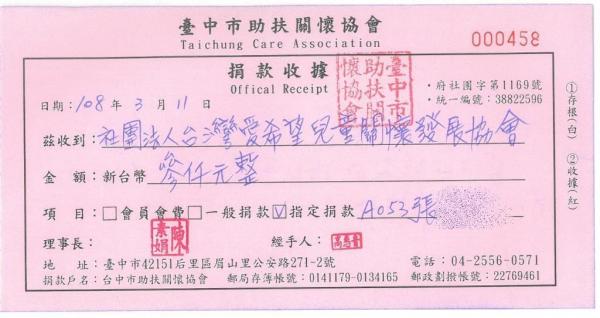 臺中市助扶關懷協會
Taichung Care Association
000458
捐款收據
Offical Receipt
臺中市助扶關懷協會
・府社團字第1169號
・統一編號：38822596
日期：108年3月11日
茲收到：社團法人台灣愛希望兒童關懷發展協會
金額：新台幣參仟元整
項目：□會員會費□一般捐款☑指定捐款 A053張
理事長：陳素娟
經手人：
地址：臺中市42151后里區眉山里公安路271-2號
電話：04-2556-0571
捐款戶名：台中市助扶關懷協會 郵局存簿帳號：0141179-0134165 郵政劃撥帳號：22769461
①存根(白) ②收據(紅)